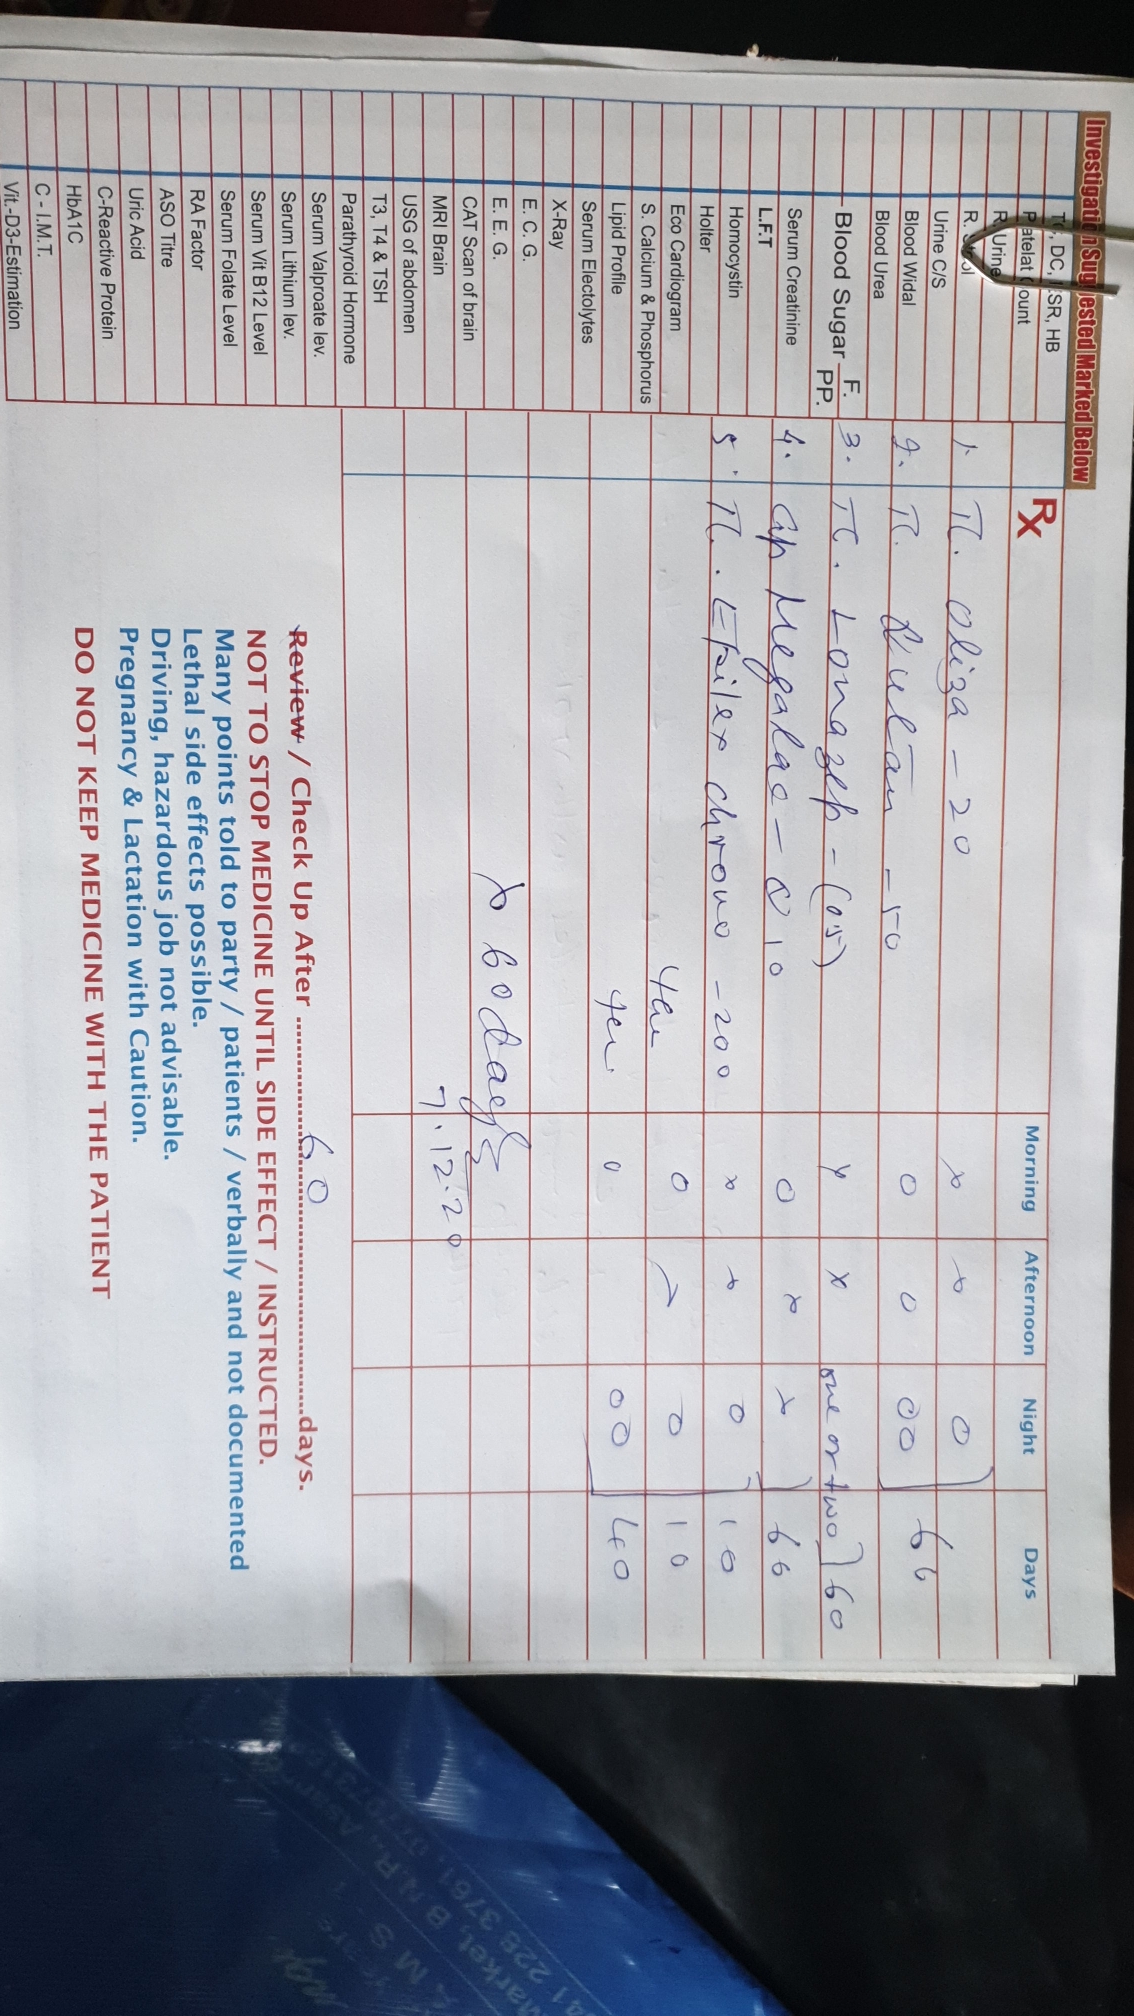 Investigation Suggested Marked Below
TC, DC, ESR, HB
Patelat Count
R. Urine
R. Stool
Urine C/S
Blood Widal
Blood Urea
Blood Sugar F. PP.
Serum Creatinine
L.F.T
Homocystin
Holter
Eco Cardiogram
S. Calcium & Phosphorus
Lipid Profile
Serum Electolytes
X-Ray
E. C. G.
E. E. G.
CAT Scan of brain
MRI Brain
USG of abdomen
T3, T4 & TSH
Parathyroid Hormone
Serum Valproate lev.
Serum Lithium lev.
Serum Vit B12 Level
Serum Folate Level
RA Factor
ASO Titre
Uric Acid
C-Reactive Protein
HbA1C
C - I.M.T.
Vit.-D3-Estimation
Rx Morning Afternoon Night Days
1. T. Oliza - 20 x x 0
2. T. - 50 0 0 00 60
3. T. Lonazep - (05) x x one or two 60
4. Cap Megalac - 10 0 x x 60
5. T. chrono - 200 x x 0 10
0 0 10
0 00 40
x 60 days
7.12.20
Review / Check Up After 60 days.
NOT TO STOP MEDICINE UNTIL SIDE EFFECT / INSTRUCTED.
Many points told to party / patients / verbally and not documented
Lethal side effects possible.
Driving, hazardous job not advisable.
Pregnancy & Lactation with Caution.
DO NOT KEEP MEDICINE WITH THE PATIENT